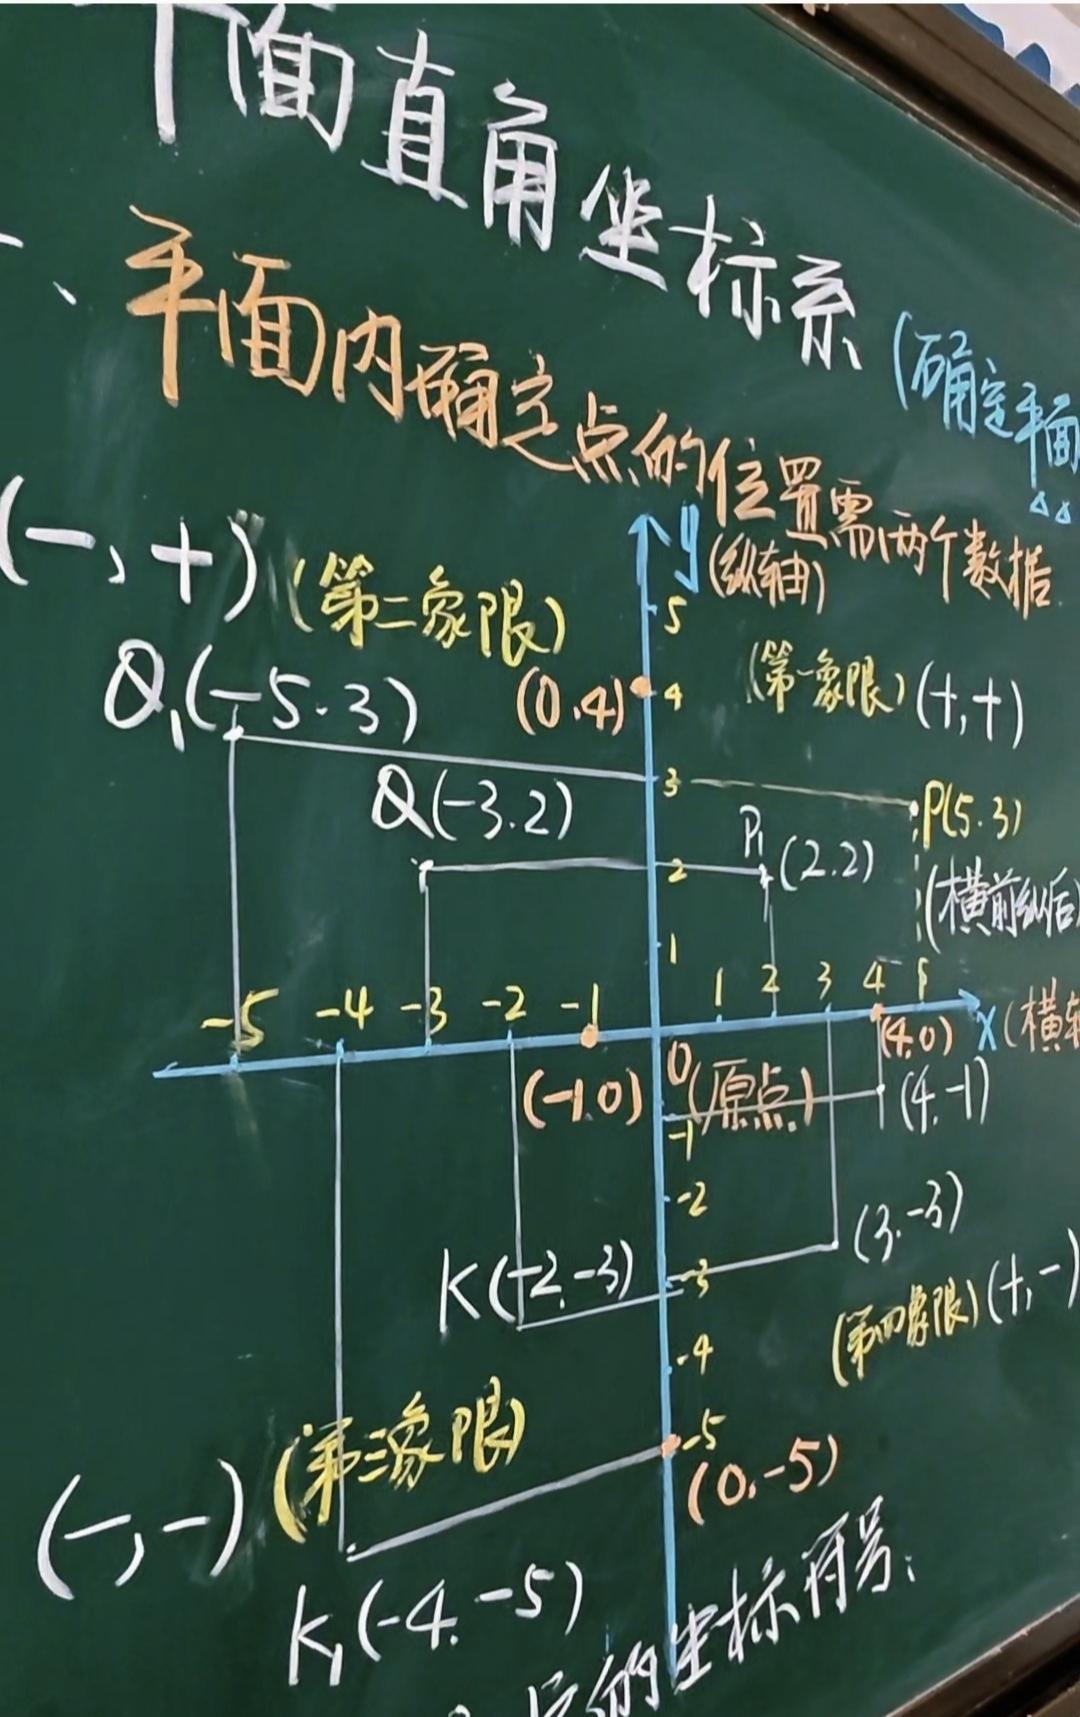 平面直角坐标系
一、平面内确定点的位置需两个数据
(确定平面
y
(纵轴)
(-,+)
(第二象限)
(第一象限)
(+,+)
5
Q₁(-5.3)
(0.4)
4
3
P(5.3)
Q(-3.2)
2
P₁(2.2)
(横前纵后)
1
-5 -4 -3 -2 -1
1 2 3 4 5
x(横轴
(-1.0)
0(原点)
(4.0)
-1
(4.-1)
-2
K(-2.-3)
-3
(3.-3)
(第四象限)
(+,-)
-4
(第三象限)
-5
(0.-5)
(-,-)
K₁(-4.-5)
点的坐标符号: